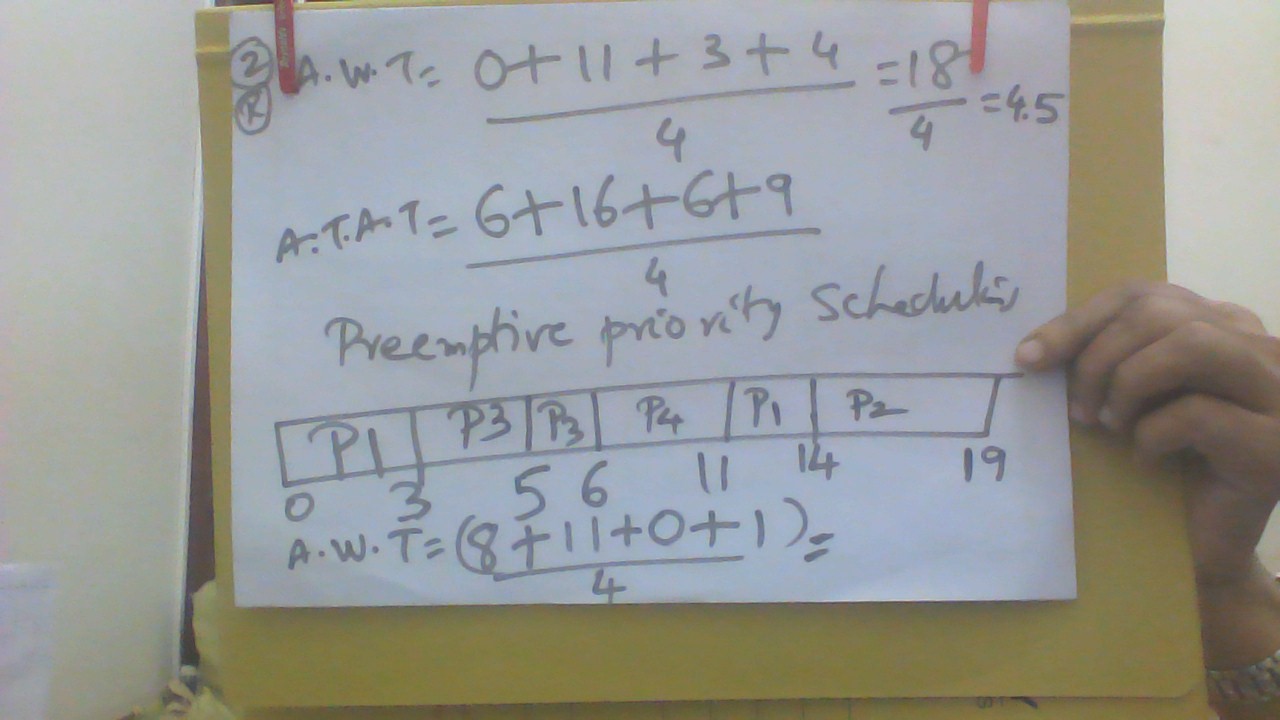 2 A.W.T = 0+11+3+4 = 18 = 4.5
R 4 4
A.T.A.T = 6+16+6+9
4
Preemptive priority Scheduling
P1 P3 P3 P4 P1 P2
0 3 5 6 11 14 19
A.W.T = (8+11+0+1) =
4